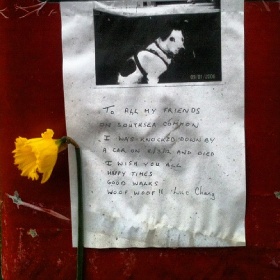 TO ALL MY FRIENDS
ON SOUTHSEA COMMON
I WAS KNOCKED DOWN BY
A CAR ON AND DIED
I WISH YOU ALL
HAPPY TIMES
GOOD WALKS
WOOF WOOF!! Love